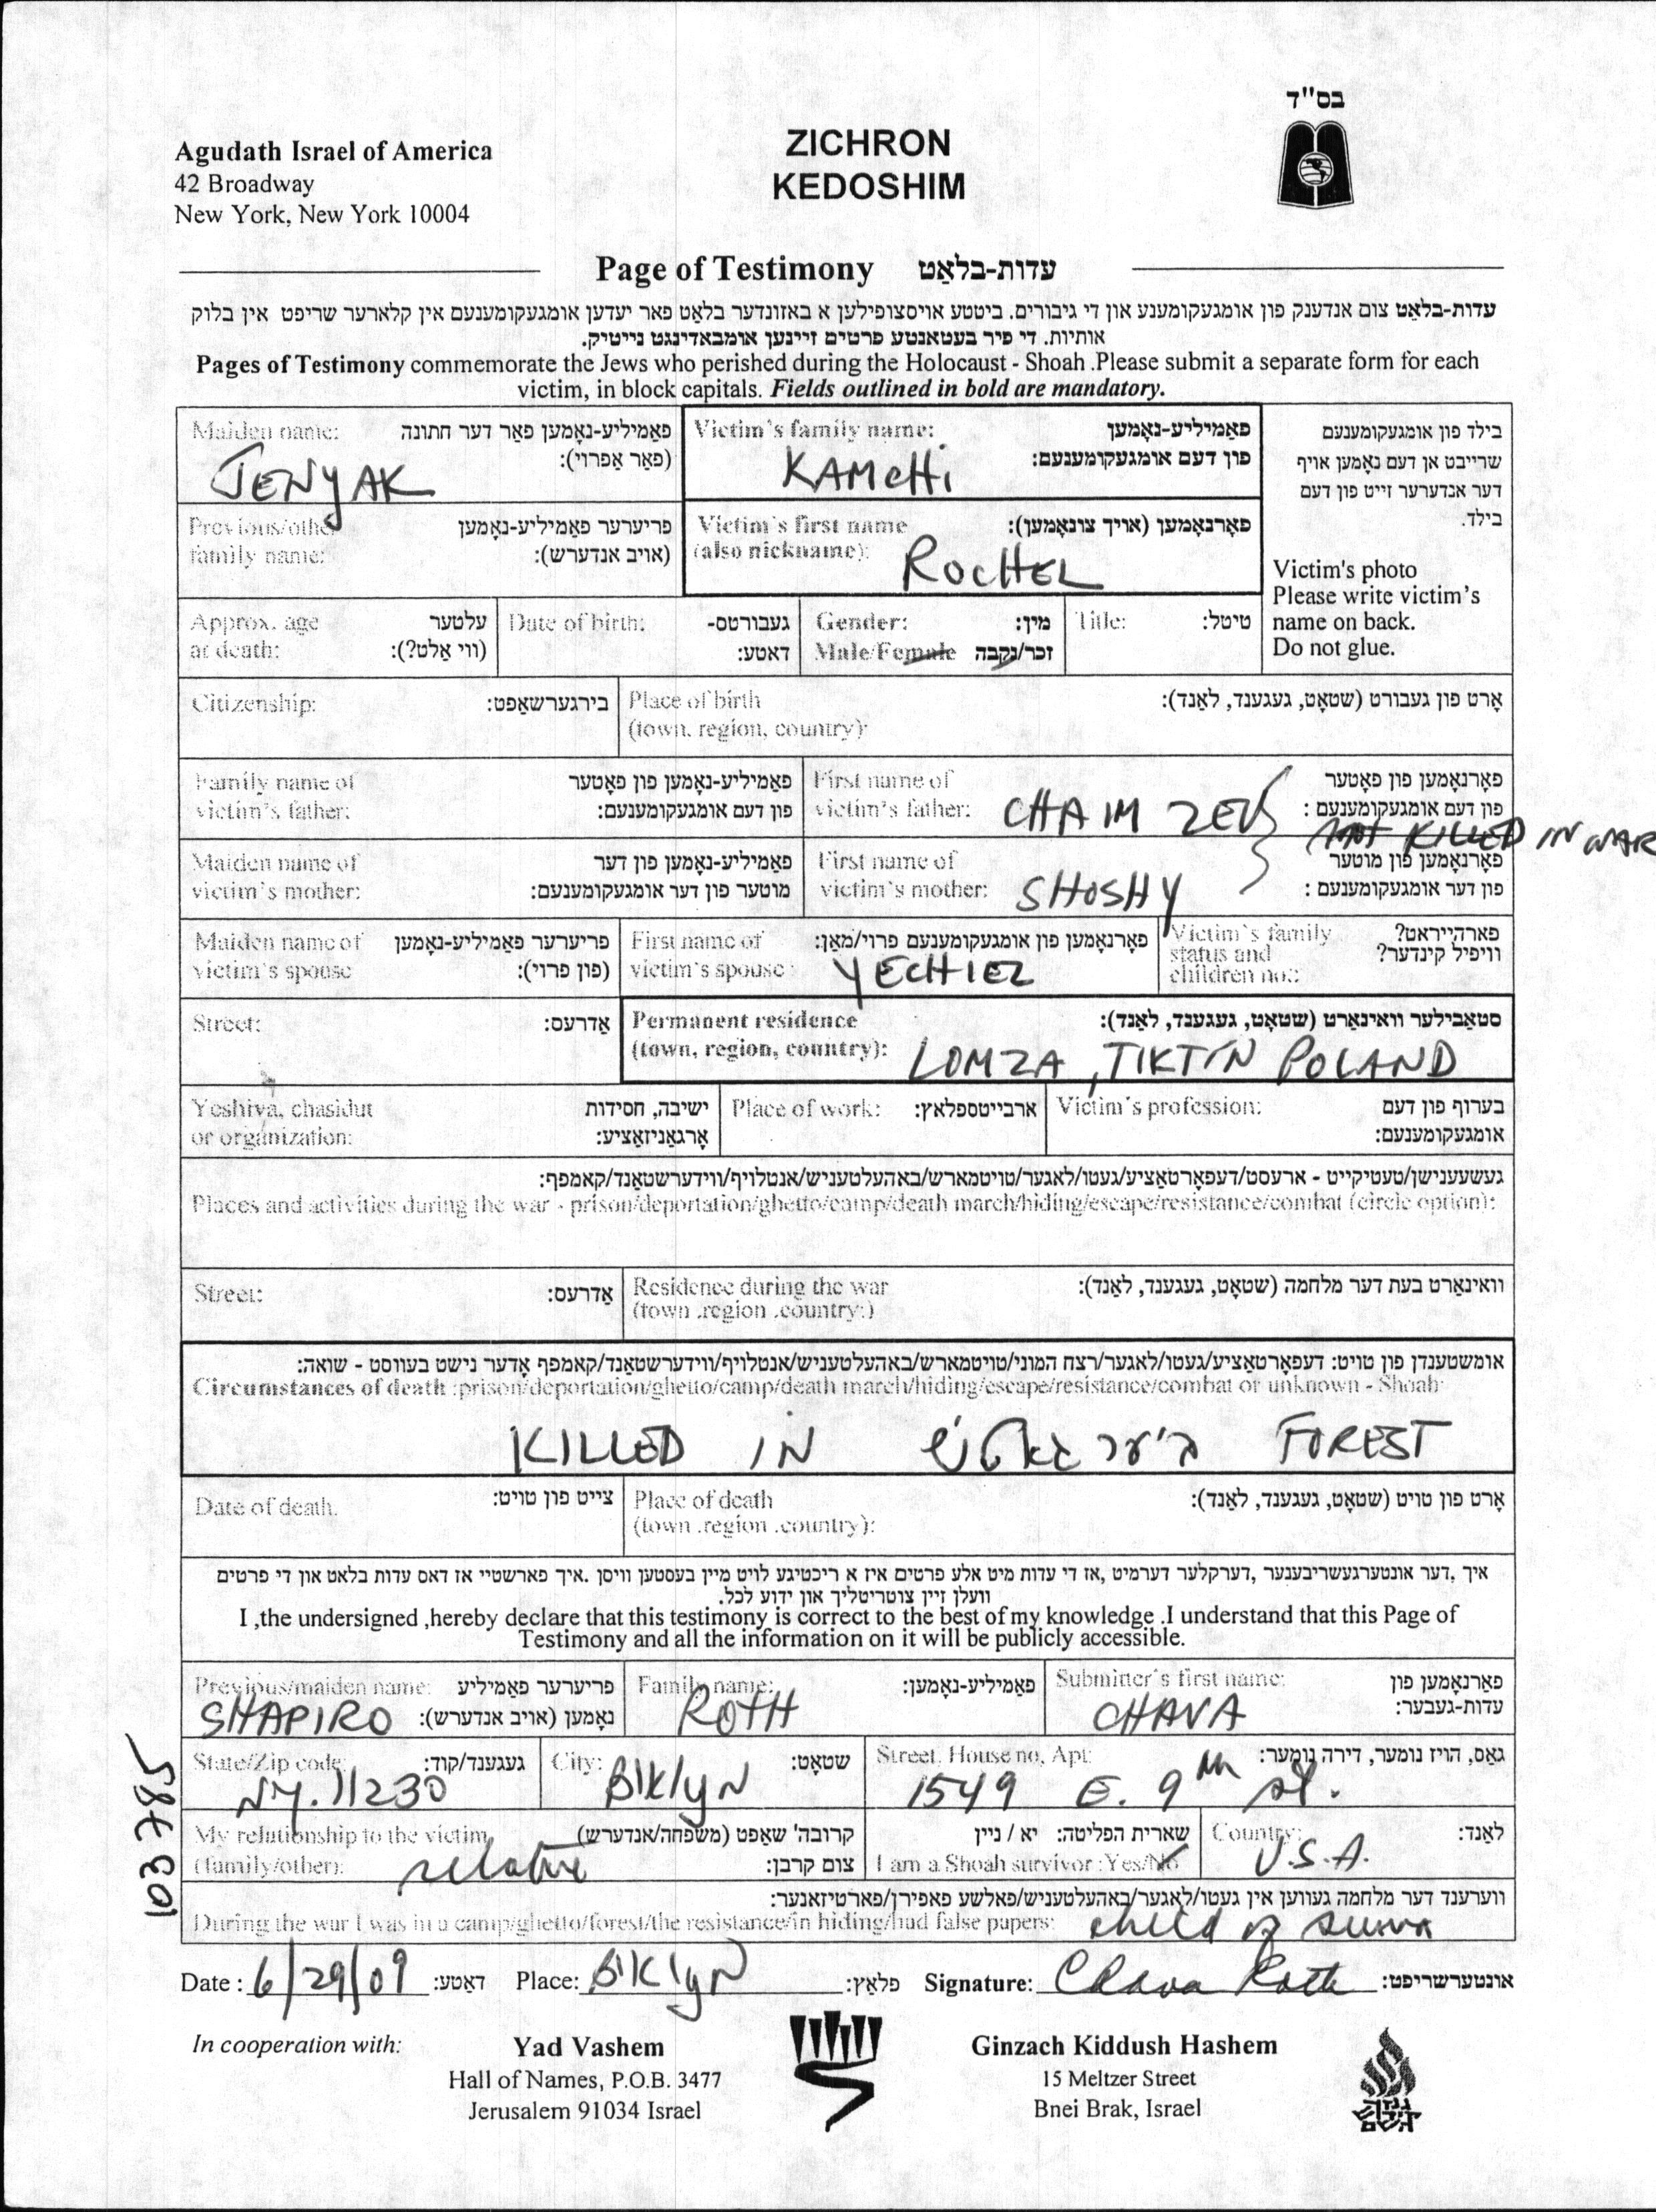 בס"ד
Agudath Israel of America
42 Broadway
New York, New York 10004
ZICHRON
KEDOSHIM
Page of Testimony עדות-בלאַט
עדות-בלאַט צום אנדענק פון אומגעקומענע און די גיבורים. ביטטע אויסצופילען א באזונדער בלאַט פאר יעדען אומגעקומענעם אין קלארער שריפט אין בלוק
אותיות. די פיר בעטאנטע פרטים זיינען אומבאדינגט נייטיק.
Pages of Testimony commemorate the Jews who perished during the Holocaust - Shoah .Please submit a separate form for each
victim, in block capitals. Fields outlined in bold are mandatory.
Maiden name: פאַמיליע-נאָמען פאַר דער חתונה
(פאַר אַפרוי):
JENYAK
Victim's family name: פאַמיליע-נאָמען
פון דעם אומגעקומענעם:
KAMCHI
בילד פון אומגעקומענעם
שרייבט אן דעם נאָמען אויף
דער אנדערער זייט פון דעם
בילד.
Victim's photo
Please write victim's
name on back.
Do not glue.
Previous/other פריערער פאַמיליע-נאָמען
family name: (אויב אנדערש):
Victim's first name פאָרנאָמען (אויך צונאָמען):
(also nickname): ROCHEL
Approx. age עלטער
at death: (ווי אַלט?):
Date of birth: געבורטס-
דאטע:
Gender: מין:
Male/Female זכר/נקבה
Title: טיטל:
Citizenship: בירגערשאַפט:
Place of birth אָרט פון געבורט (שטאָט, געגענד, לאַנד):
(town, region, country):
Family name of פאַמיליע-נאָמען פון פאָטער
victim's father: פון דעם אומגעקומענעם:
First name of פאָרנאָמען פון פאָטער
victim's father: CHAIM ZEV פון דעם אומגעקומענעם :
KILLED IN WAR
Maiden name of פאַמיליע-נאָמען פון דער
victim's mother: מוטער פון דער אומגעקומענעם:
First name of פאָרנאָמען פון מוטער
victim's mother: SHOSHY פון דער אומגעקומענעם :
Maiden name of פריערער פאַמיליע-נאָמען
victim's spouse (פון פרוי):
First name of פאָרנאָמען פון אומגעקומענעם פרוי/מאַן:
victim's spouse: YECHIEL
Victim's family פארהייראט?
status and וויפיל קינדער?
children no.:
Street: אַדרעס:
Permanent residence סטאַבילער וואינאָרט (שטאָט, געגענד, לאַנד):
(town, region, country): LOMZA, TIKTIN POLAND
Yeshiva, chasidut ישיבה, חסידות
or organization: אָרגאַניזאַציע:
Place of work: ארבייטספלאץ:
Victim's profession: בערוף פון דעם
אומגעקומענעם:
געשעענישן/טעטיקייט - ארעסט/דעפאָרטאַציע/געטו/לאגער/טויטמארש/באהעלטעניש/אנטלויף/ווידערשטאַנד/קאמפף:
Places and activities during the war - prison/deportation/ghetto/camp/death march/hiding/escape/resistance/combat (circle option):
Street: אַדרעס:
Residence during the war וואינאָרט בעת דער מלחמה (שטאָט, געגענד, לאַנד):
(town .region .country:)
אומשטענדן פון טויט: דעפאָרטאַציע/געטו/לאגער/רצח המוני/טויטמארש/באהעלטעניש/אנטלויף/ווידערשטאַנד/קאמפף אָדער נישט בעוווסט - שואה:
Circumstances of death :prison/deportation/ghetto/camp/death march/hiding/escape/resistance/combat or unknown - Shoah:
KILLED IN FOREST
Date of death. צייט פון טויט:
Place of death אָרט פון טויט (שטאָט, געגענד, לאַנד):
(town .region .country):
איך ,דער אונטערגעשריבענער ,דערקלער דערמיט ,אז די עדות מיט אלע פרטים איז א ריכטיגע לויט מיין בעסטען וויסן .איך פארשטיי אז דאס עדות בלאט און די פרטים
וועלן זיין צוטריטליך און ידוע לכל.
I ,the undersigned ,hereby declare that this testimony is correct to the best of my knowledge .I understand that this Page of
Testimony and all the information on it will be publicly accessible.
Previous/maiden name: פריערער פאַמיליע
SHAPIRO נאָמען (אויב אנדערש):
Family name: פאַמיליע-נאָמען:
ROTH
Submitter's first name: פאָרנאָמען פון
עדות-געבער:
CHAVA
State/Zip code: געגענד/קוד:
NY. 11230
City: שטאָט:
BKlyN
Street. House no, Apt: גאַס, הויז נומער, דירה נומער:
1549 E. 9th St.
My relationship to the victim קרובה' שאַפט (משפחה/אנדערש)
(family/other): relative צום קרבן:
שארית הפליטה: יא / ניין
I am a Shoah survivor :Yes/No
Country: לאַנד:
U.S.A.
ווערענד דער מלחמה געווען אין געטו/לאַגער/באהעלטעניש/פאלשע פאפירן/פארטיזאנער:
During the war I was in a camp/ghetto/forest/the resistance/in hiding/had false papers: child of
Date : 6/29/09 דאטע: Place: BKlyN פלאַץ: Signature: Chava Roth אונטערשריפט:
In cooperation with:
Yad Vashem
Hall of Names, P.O.B. 3477
Jerusalem 91034 Israel
Ginzach Kiddush Hashem
15 Meltzer Street
Bnei Brak, Israel
גנזך
קידוש
השם
103785